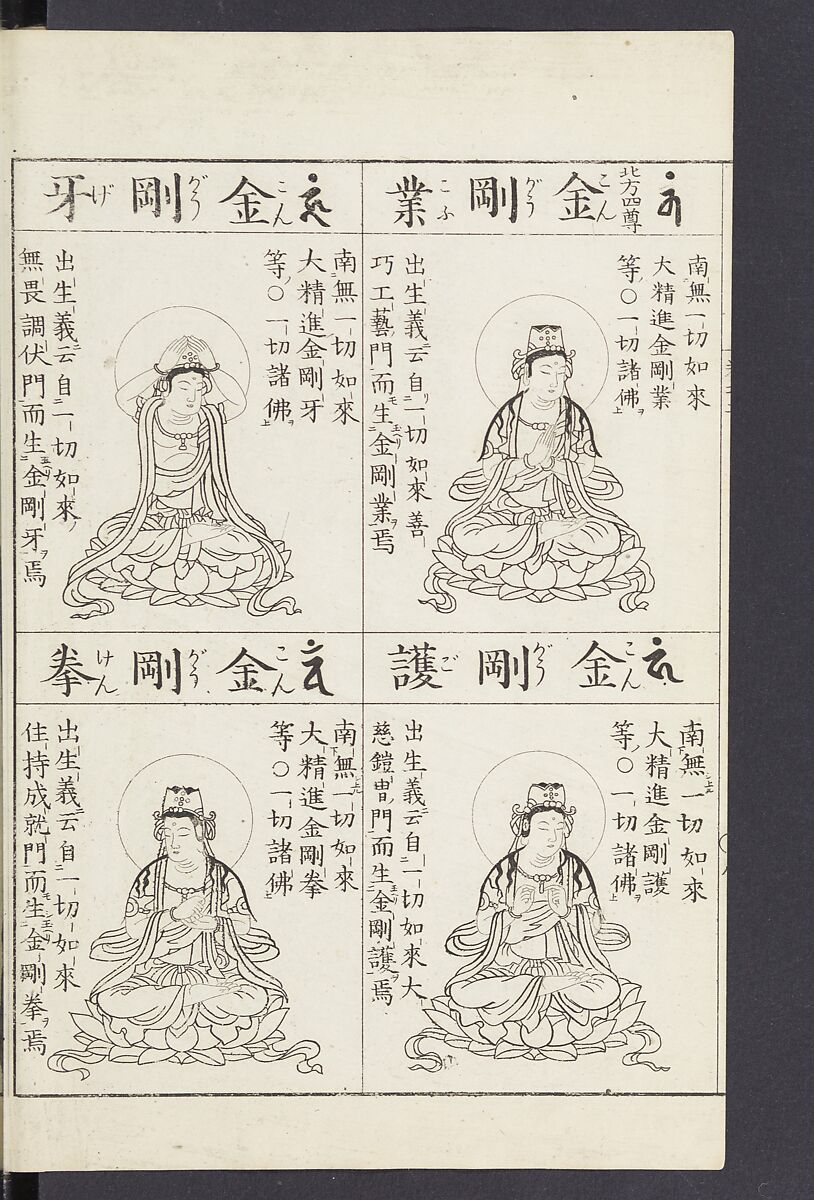 北方四尊
金剛業
こんがうごふ
南無一切如來
大精進金剛業
等〇一切諸佛
出生義云自一切如來善
巧工藝門而生金剛業焉
金剛牙
こんがうげ
南無一切如來
大精進金剛牙
等〇一切諸佛
出生義云自一切如來
無畏調伏門而生金剛牙焉
金剛護
こんがうご
南無一切如來
大精進金剛護
等〇一切諸佛
出生義云自一切如來大
慈鎧冑門而生金剛護焉
金剛拳
こんがうけん
南無一切如來
大精進金剛拳
等〇一切諸佛
出生義云自一切如來
住持成就門而生金剛拳焉